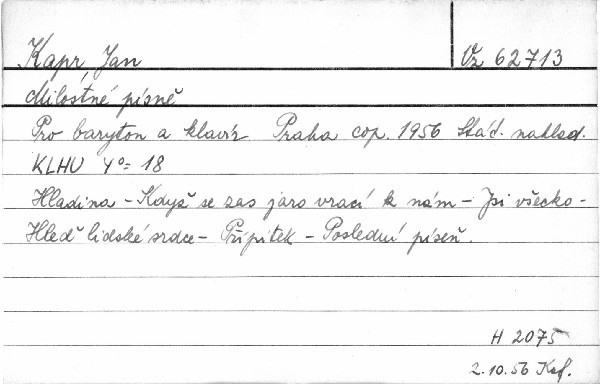 Kapr, Jan Vz 62713
Milostné písně
Pro baryton a klavír Praha cop. 1956 Stát. naklad.
KLHU 4°= 18
Hladina - Když se zas jaro vrací k nám - Jsi všecko -
Hleď lidské srdce - Přípitek - Poslední píseň.
H 2075
2.10.56